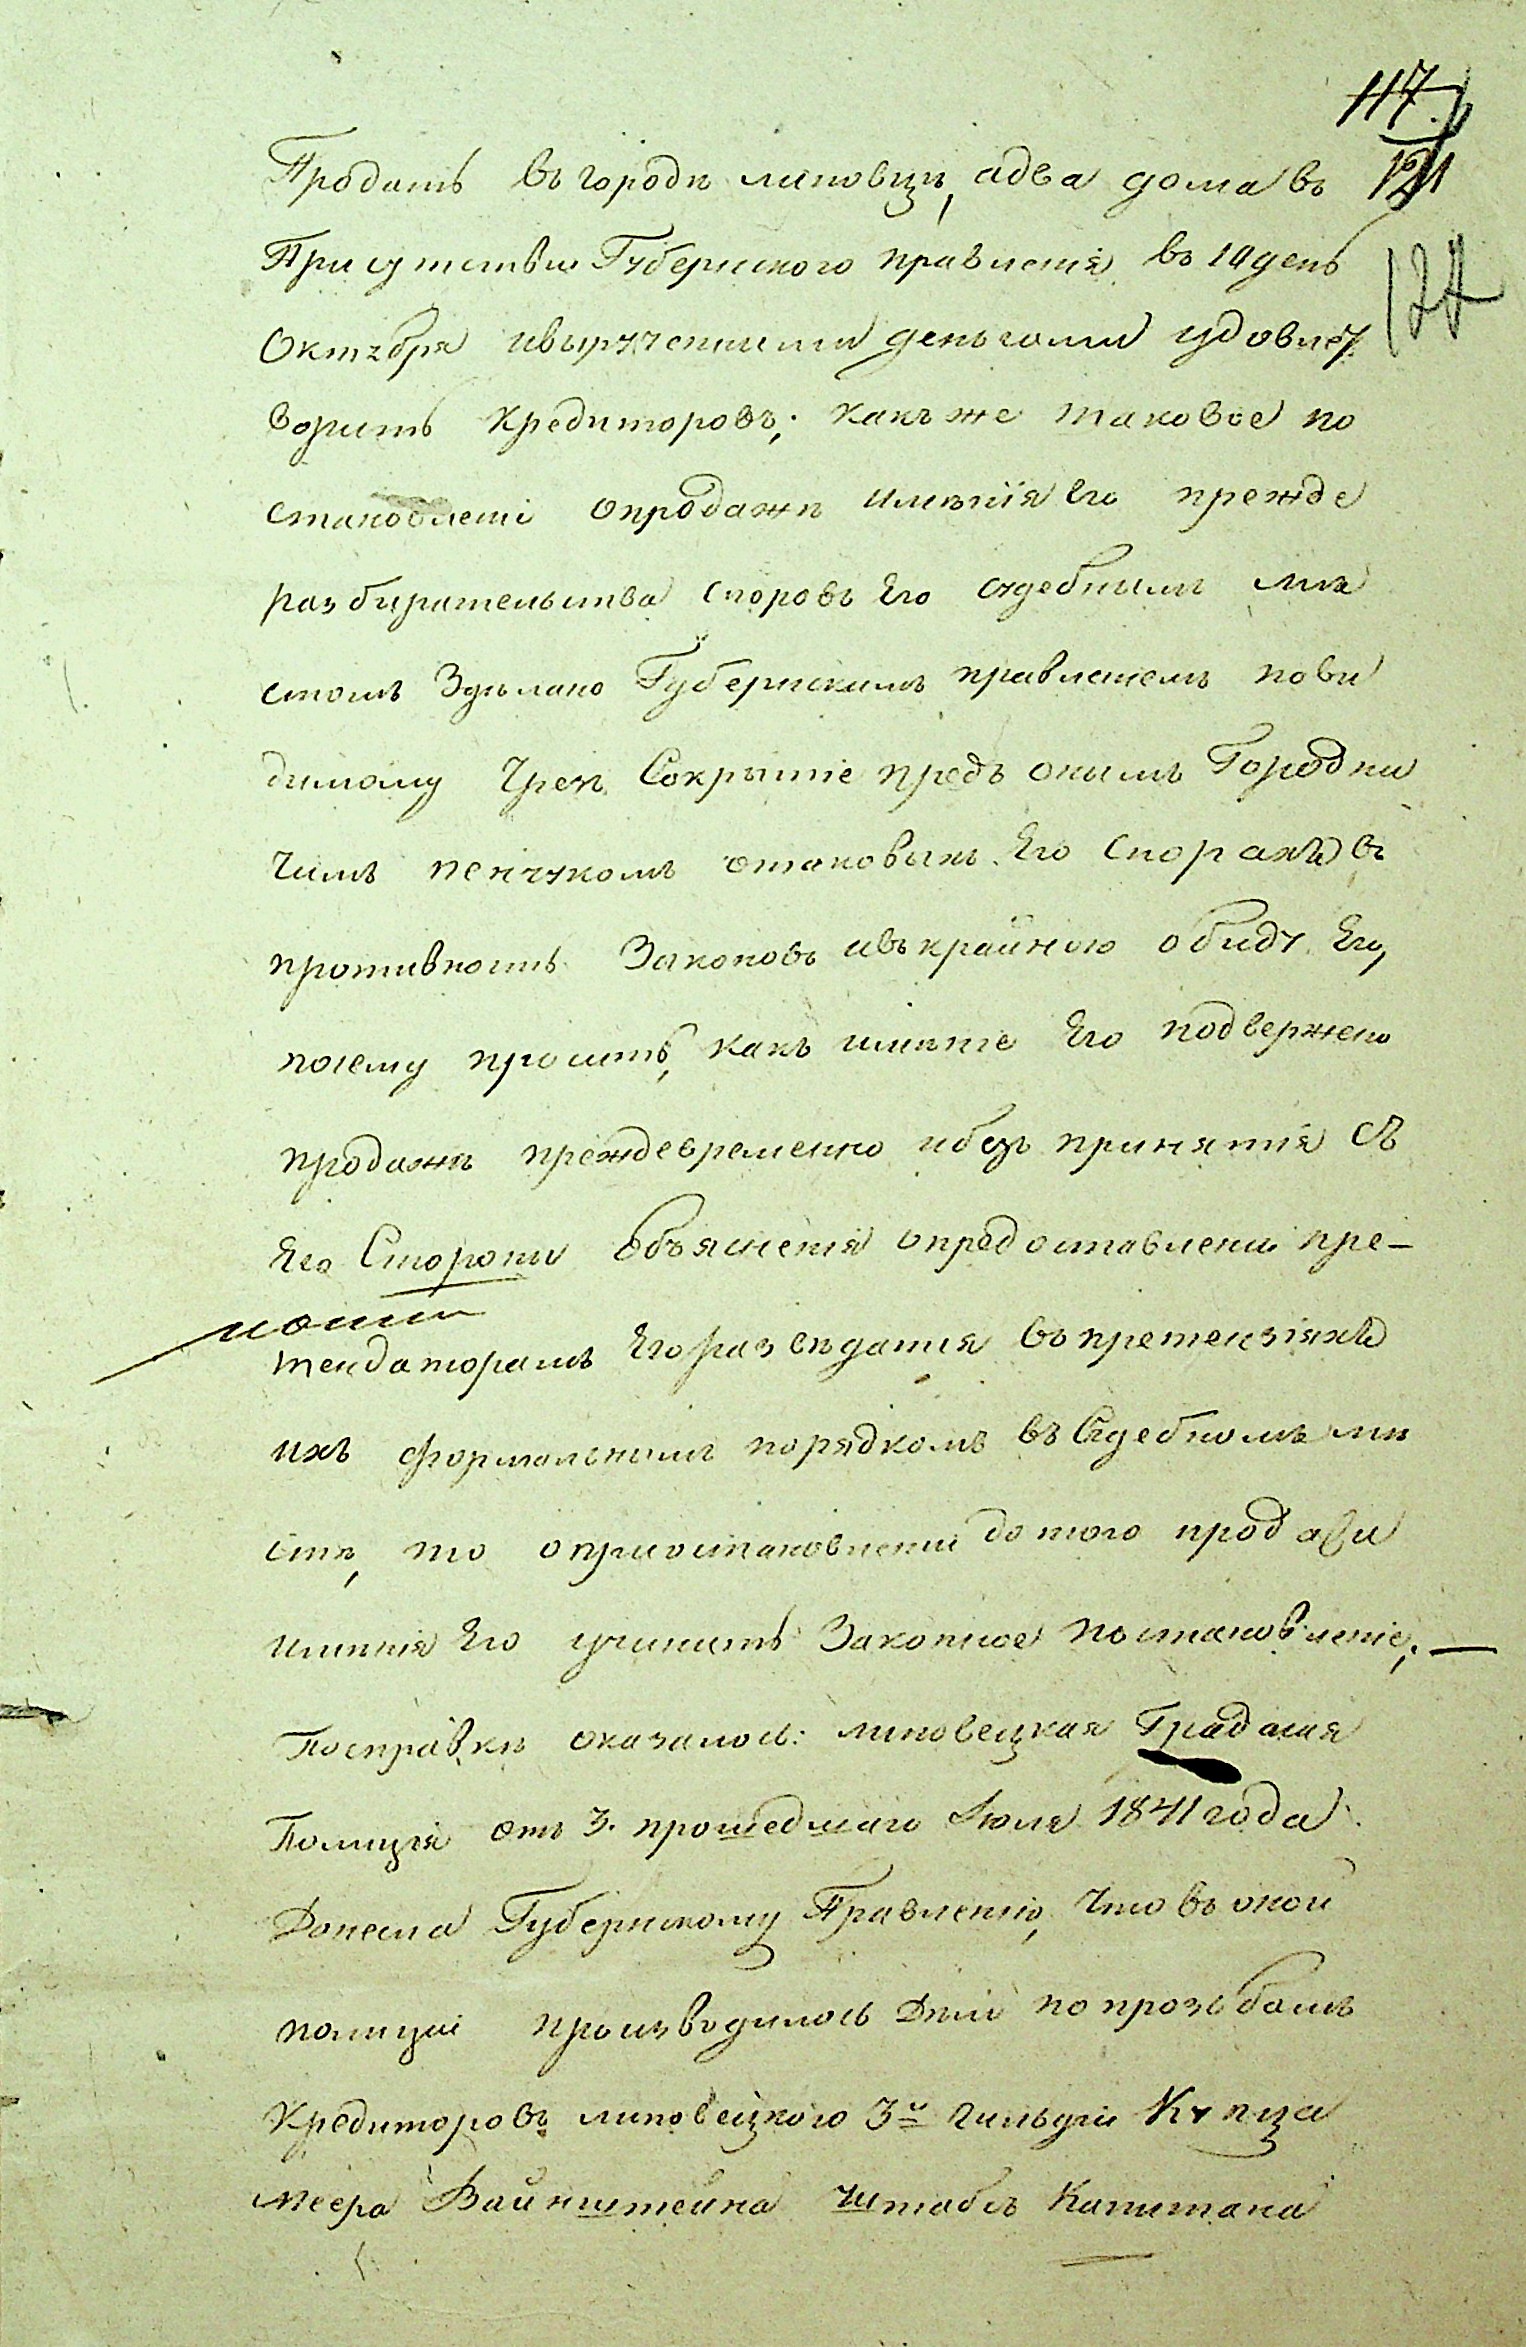 117
121
Продать въ городѣ липовцѣ, а два дома въ
122
Присутствіи Губернского правленія въ 10 день
Октября и вырученными деньгами удовлет
ворить кредиторовъ; какъ же таковое по
становленіе о продажѣ имѣнія Его прежде
разбирательства споровъ Его судебнымъ мѣ
стомъ Здѣлано Губернскимъ правленіемъ пови
димому Чрезъ Сокрытіе предъ онымъ Городни
чимъ пенчукомъ о таковыхъ Его Спорахъ въ
противность Законовъ и въ крайною обиду Его,
почему проситъ, какъ имѣніе Его подвержено
продажѣ преждевременно и безъ принятія съ
Его Стороны Объясненія о предоставленіи пре-
тендаторамъ Его разведанія въ претензіяхъ
ихъ формальнымъ порядкомъ въ Судебномъ мѣ
стѣ, то о пріостановленіи до того продажи
имѣнія Его учинить Законное постановленіе; —
По справкѣ оказалось: липовецкая Градская
Полиція отъ 3. прошедшаго Іюля 1841 года
Донесла Губернскому Правленію, Что въ оной
полиціи производилось Дѣло по прозьбамъ
Кредиторовъ липовецкого 3й гильдіи Купца
меера Вайнштейна Штабсъ Капитана